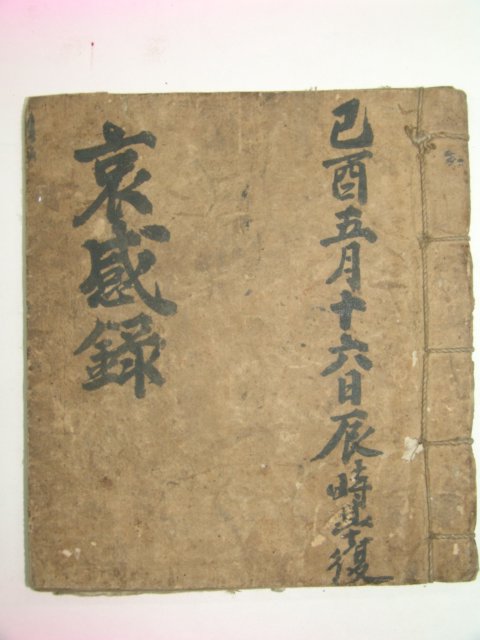 己酉五月十六日辰時皐復
哀感録